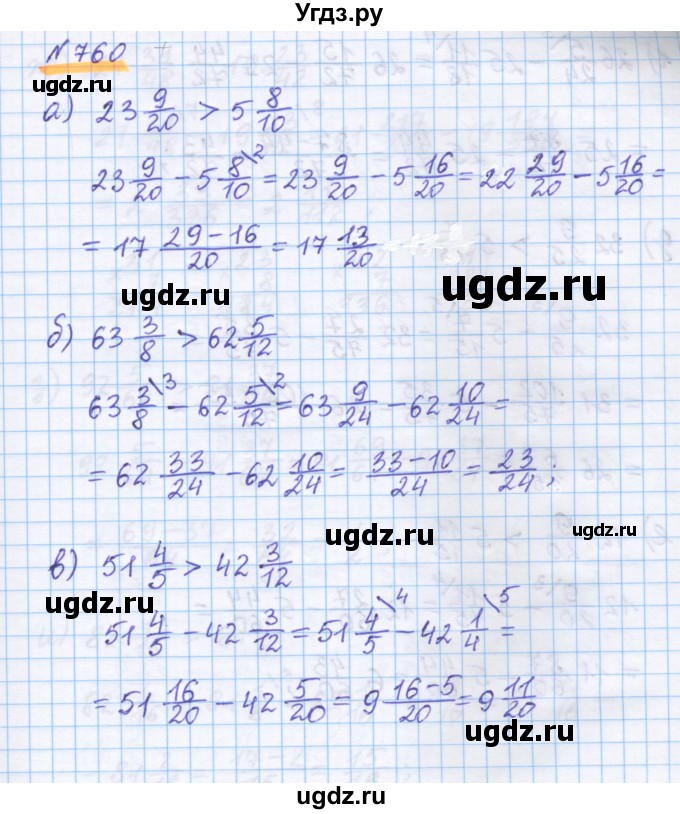 Угдз.ру
№ 760
ugdz.ru
а) 23 9/20 > 5 8/10
23 9/20 − 5 8/10 \2 = 23 9/20 − 5 16/20 = 22 29/20 − 5 16/20 =
= 17 (29−16)/20 = 17 13/20
ugdz.ru ugdz.ru
б) 63 3/8 > 62 5/12
63 3/8 \3 − 62 5/12 \2 = 63 9/24 − 62 10/24 =
= 62 33/24 − 62 10/24 = (33−10)/24 = 23/24 ;
ugdz.ru
в) 51 4/5 > 42 3/12
ugdz.ru
51 4/5 − 42 3/12 = 51 4/5 \4 − 42 1/4 \5 =
= 51 16/20 − 42 5/20 = 9 (16−5)/20 = 9 11/20
ugdz.ru
ugdz.ru